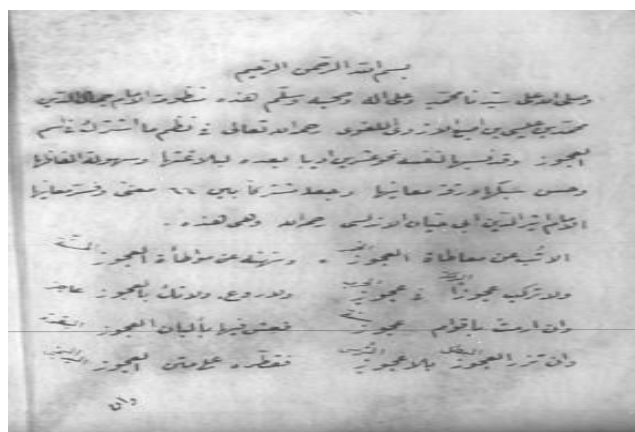 بسم الله الرحمن الرحيم
وصلى الله على سيدنا محمد وعلى اله وصحبه وسلم هذه منظومة الامام جمال الدين
محمد بن عيسى بن اصبغ الازدي اللغوي رحمه الله تعالى في نظم ما اشترك في اسم
العجوز وقد نسبها لنفسه نحو عشرين اديبا بعده لبلاغتها وسهولة الفاظها
وحسن سبكها ورقة معانيها وجعله مشتركا بين ٦٦ معنى وفسر معانيها
الامام اثير الدين ابي حيان الاندلسي رحمه الله وهي هذه
الا تب عن معاطاة العجوز ونهنه عن مواطأة العجوز
ولا تركب عجوزا في عجوز ولا روع ولا تك بالعجوز عاجز
وان ارمت باقوام عجوز فعش فيها بألبان العجوز
وان تزر العجوز بلا عجوز فقطره على متن العجوز
وان